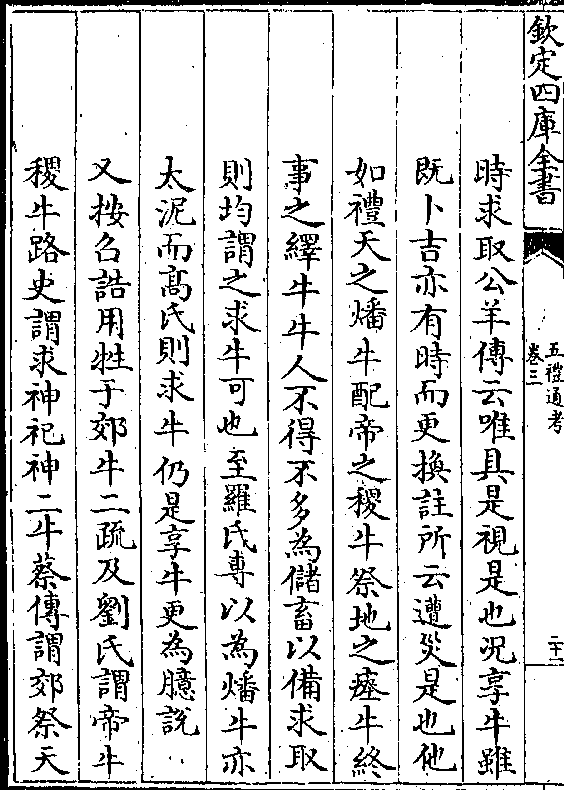 欽定四庫全書
五禮通考
卷三
二十一
時求取公羊傳云唯具是視是也况享牛雖
既卜吉亦有時而更換註所云遭災是也他
如禮天之燔牛配帝之稷牛祭地之瘞牛終
事之繹牛牛人不得不多為儲畜以備求取
則均謂之求牛可也至羅氏專以為燔牛亦
太泥而髙氏則求牛仍是享牛更為臆説
又按召誥用牲于郊牛二疏及劉氏謂帝牛
稷牛路史謂求神祀神二牛蔡傳謂郊祭天